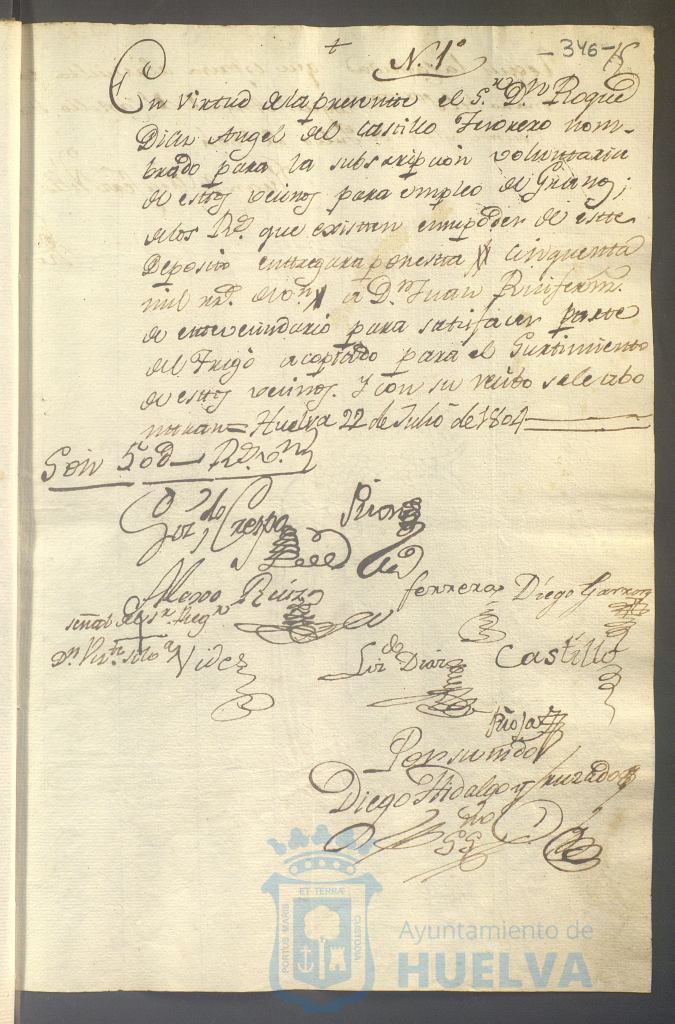 +
N. 1º
- 346 -
En virtud de la presente el S.ʳ Dⁿ Roque
Dias Angel del Castillo Thesorero nom-
brado para la subscripcion voluntaria
de estos vecinos para empleo de Granos;
de los Rˢ que existen en poder de este
Deposito entregara por esta cinquenta
mil rrˢ de vⁿ a Dⁿ Juan
de este vecindario para satisfacer parte
del Trigo acoptado para el Surtimiento
de estos vecinos. Y con su recibo se le abo
naran = Huelva 22 de Julio de 1804
Son 50 Rˢ vⁿ
Lizᵈᵒ Crespo
Alonso Ruiz
Ferrera
Diego Garzon
señal del Sʳ Regʳ
Videz
Lizᵈᵒ Diaz
Castillo
Rioja
Por su mdᵒ
Diego Hidalgo y Jurado
PORTUS MARIS
ET TERRÆ
CUSTODIA
Ayuntamiento de
HUELVA